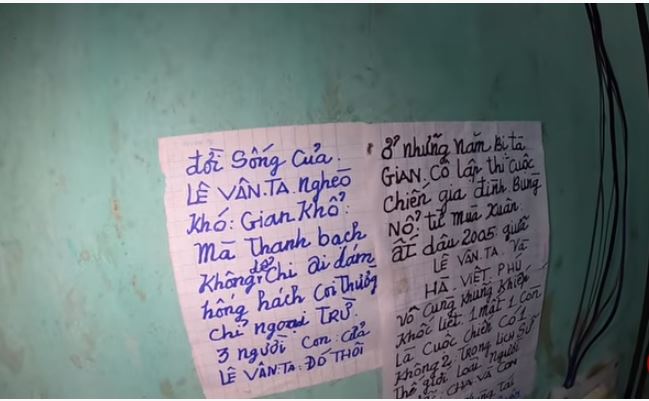 đời Sống Của.
LÊ VÂN.TA. Nghèo
Khó: Gian Khổ:
Mà Thanh bạch
Không để Chi ai dám
hống hách Coi Thường
chỉ ngoại TRỪ.
3 người Con. của
LÊ VÂN.TA: ĐÓ THÔI
Ở Những Năm Bị tà
GIAN. CÔ Lập thì Cuộc
Chiến gia đình Bung
NỔ. từ Mùa Xuân.
ẤT dậu 2005. giữa
LÊ VÂN.TA. Và
HÀ. VIỆT PHÚ
Vô Cùng Khủng Khiếp
Khốc liệt. 1 Mất 1 Còn
Là Cuộc Chiến Có 1
Không 2. TRong Lịch SỬ
Thế giới Loài Người
CHA VÀ CON